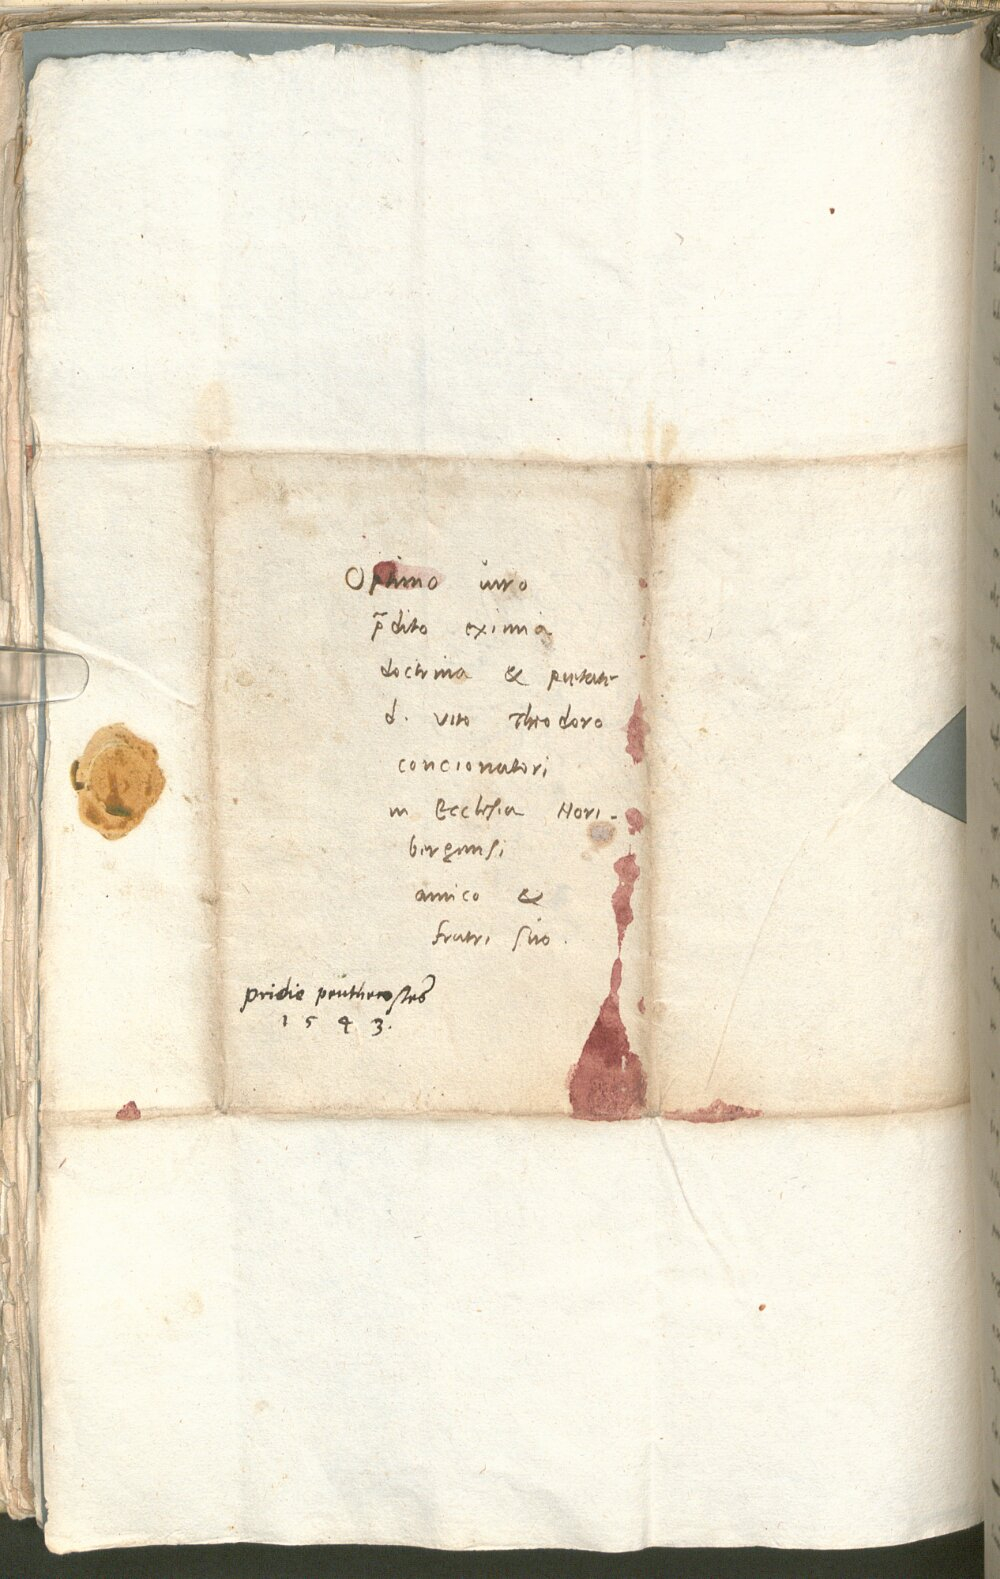 Optimo viro
p̃dito eximia
doctrina & pietate
d. Vito Theodoro
concionatori
in Ecclesia Nori-
bergensi
amico &
fratri suo.
pridie penthecostes
1543.